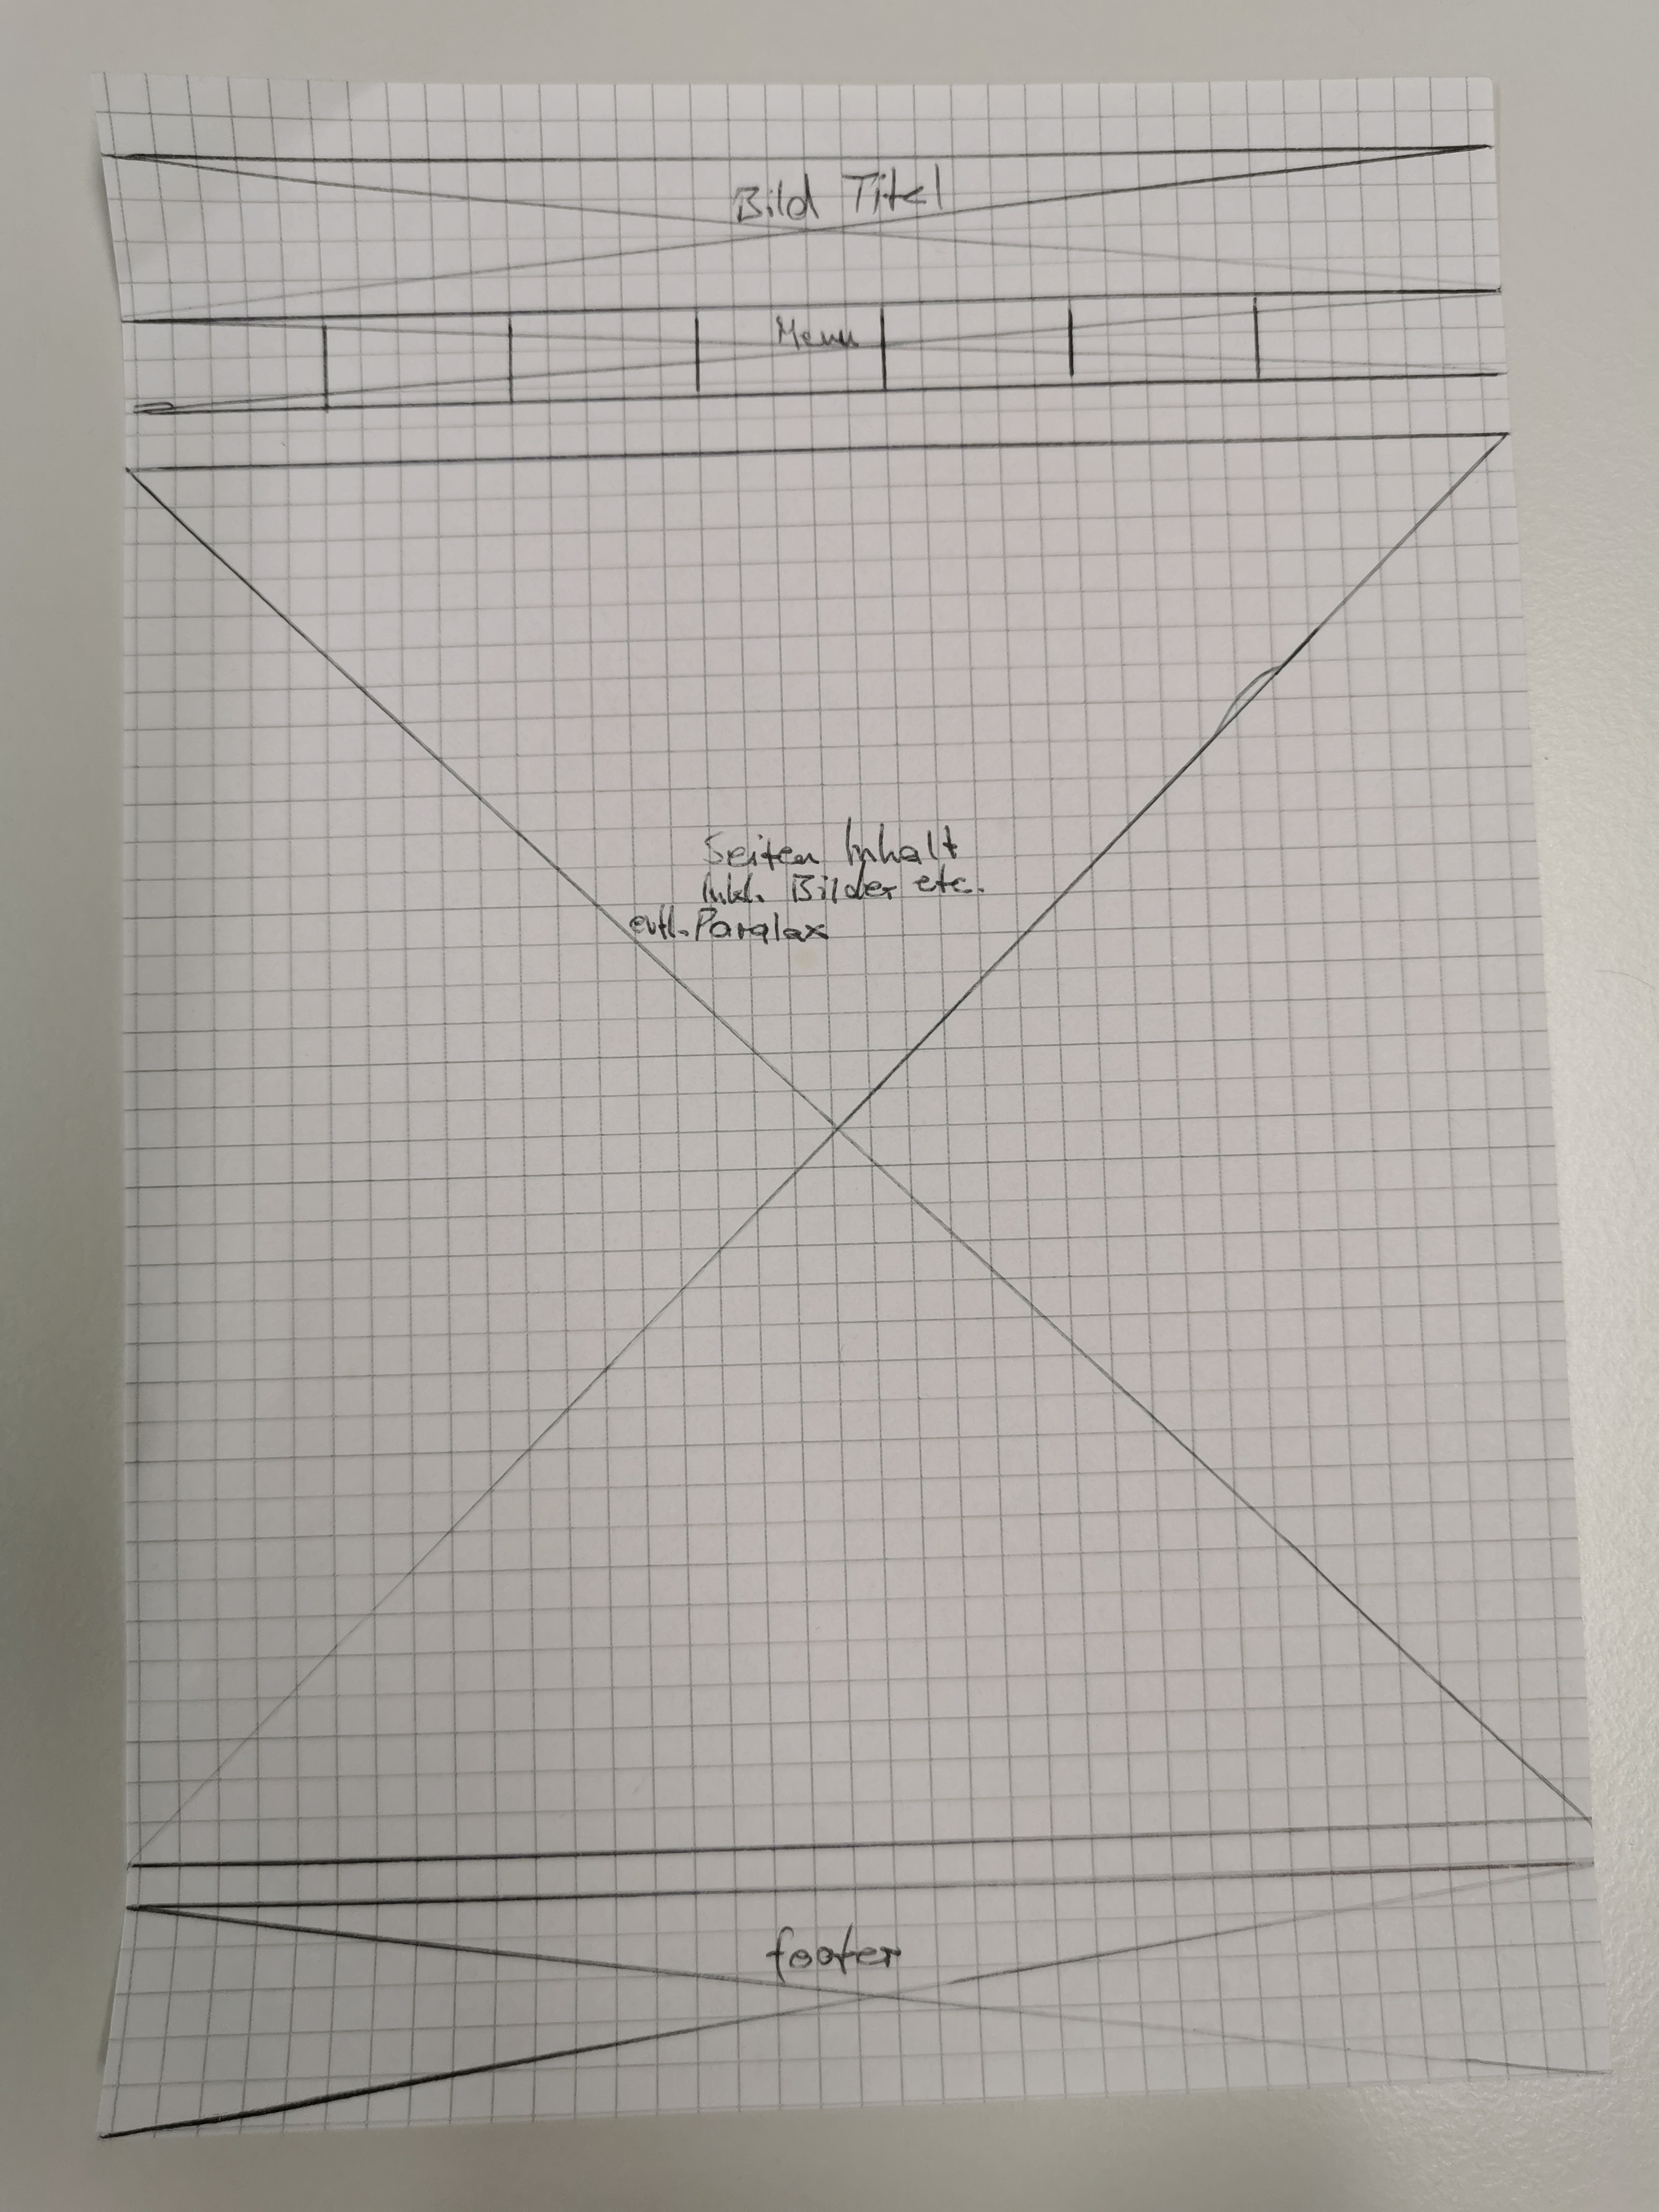 Bild Titel
Menu
Seiten Inhalt
Inkl. Bilder etc.
evtl. Paralax
footer